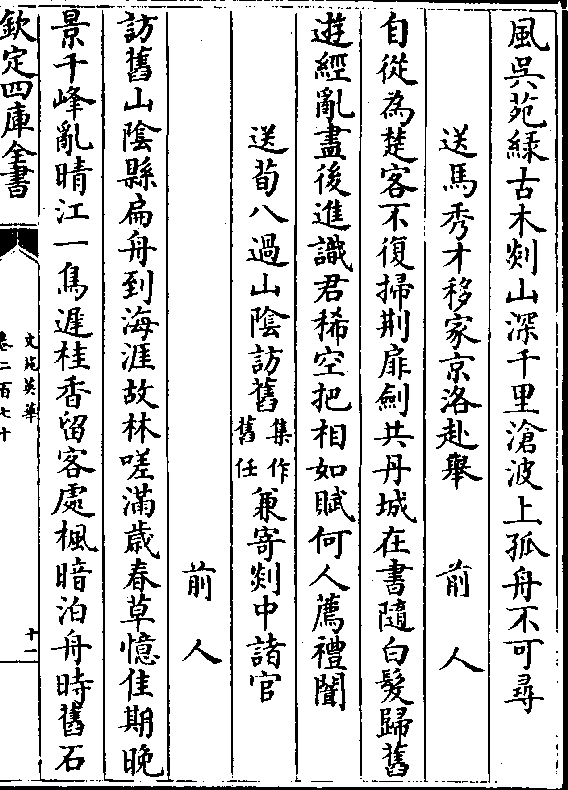 風呉苑緑古木剡山深千里滄波上孤舟不可尋
送馬秀才移家京洛赴舉　前人
自從為楚客不復掃荆扉劍共丹城在書隨白髮歸舊
遊經亂盡後進識君稀空把相如賦何人薦禮闈
送荀八過山陰訪舊集作舊任兼寄剡中諸官
前人
訪舊山陰縣扁舟到海涯故林嗟滿歲春草憶佳期晚
景千峰亂晴江一鳥遲桂香留客處楓暗泊舟時舊石
欽定四庫全書
文苑英華
卷二百七十
十一